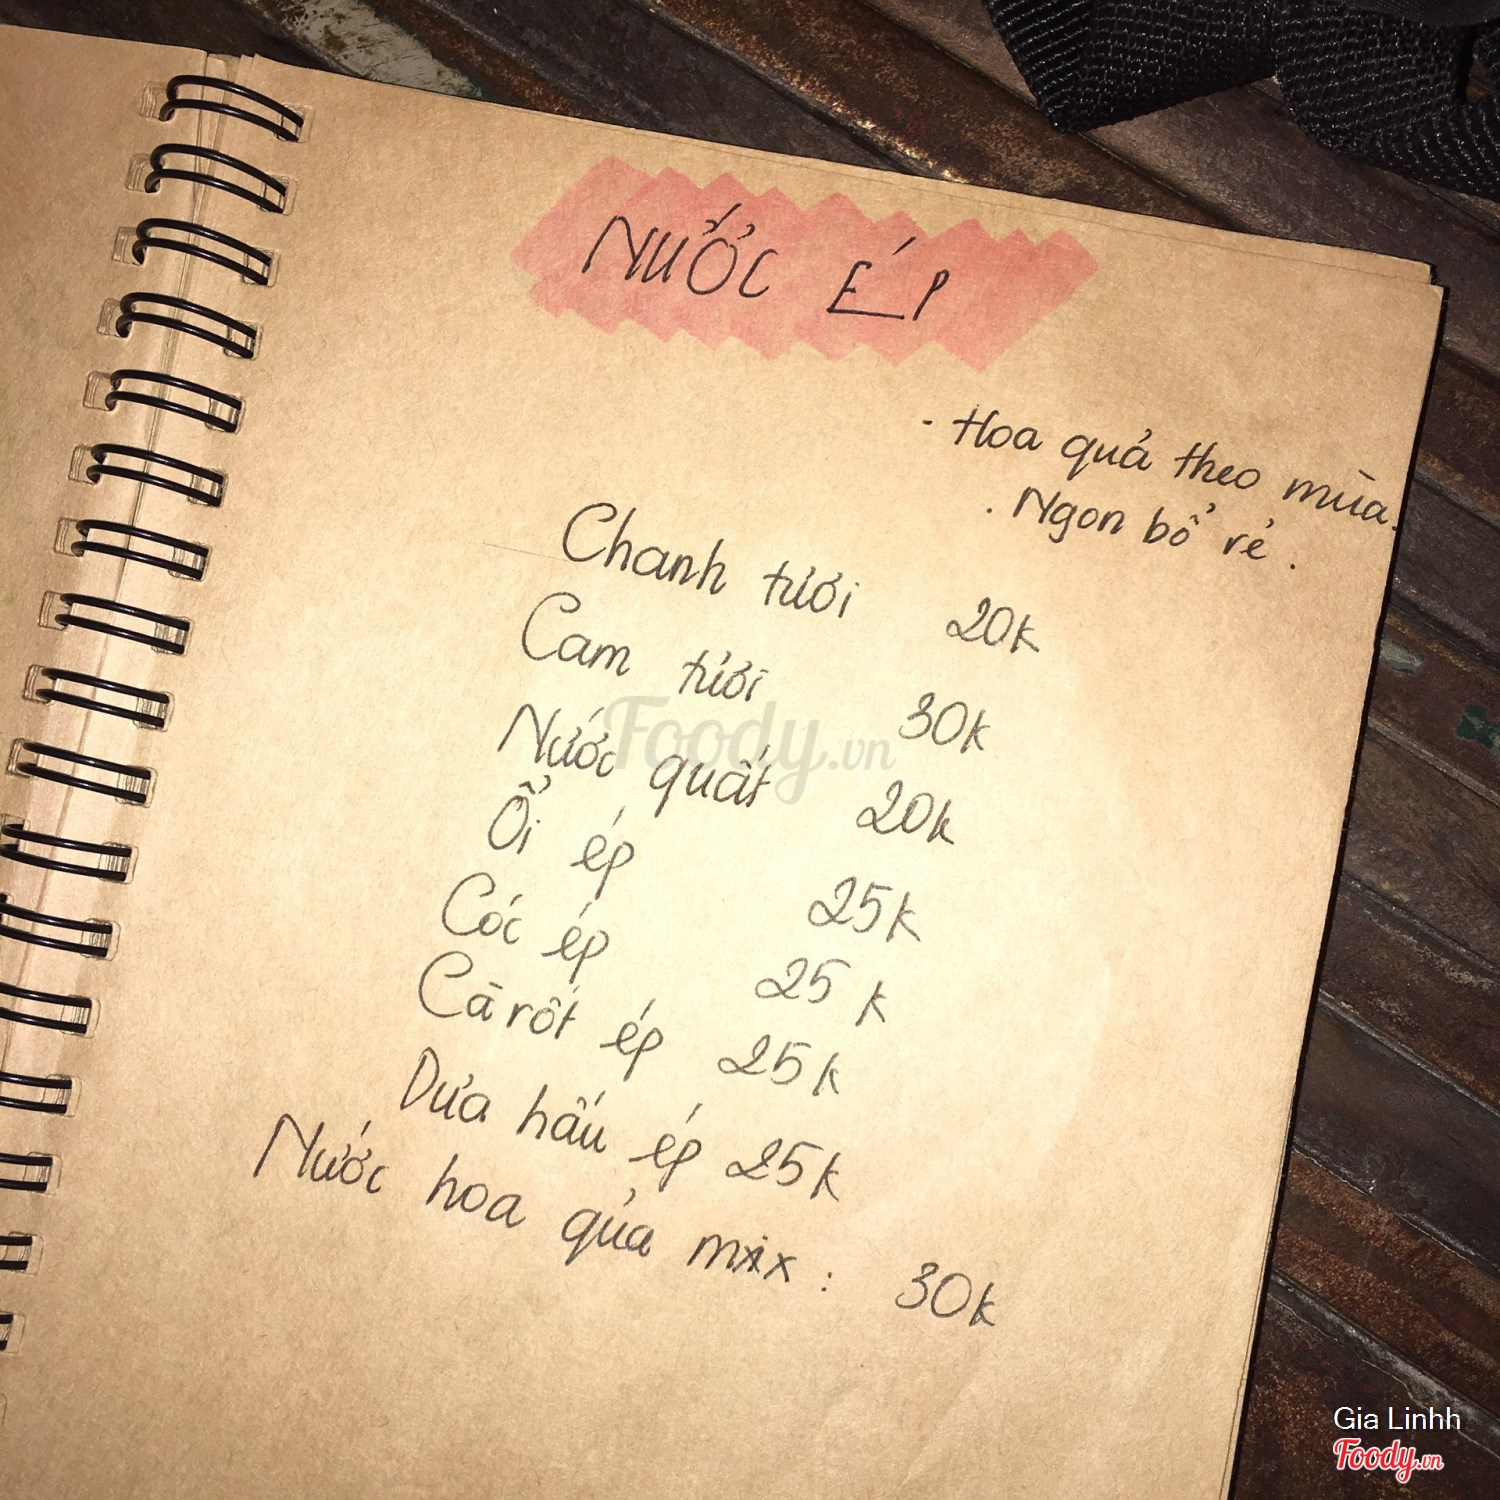 NƯỚC ÉP
- Hoa quả theo mùa.
. Ngon bổ rẻ.
Chanh tươi 20k
Cam tươi 30k
Nước quất 20k
Ổi ép 25k
Cóc ép 25k
Cà rốt ép 25k
Dưa hấu ép 25k
Nước hoa quả mix : 30k
Foody.vn
Gia Linhh
Foody.vn